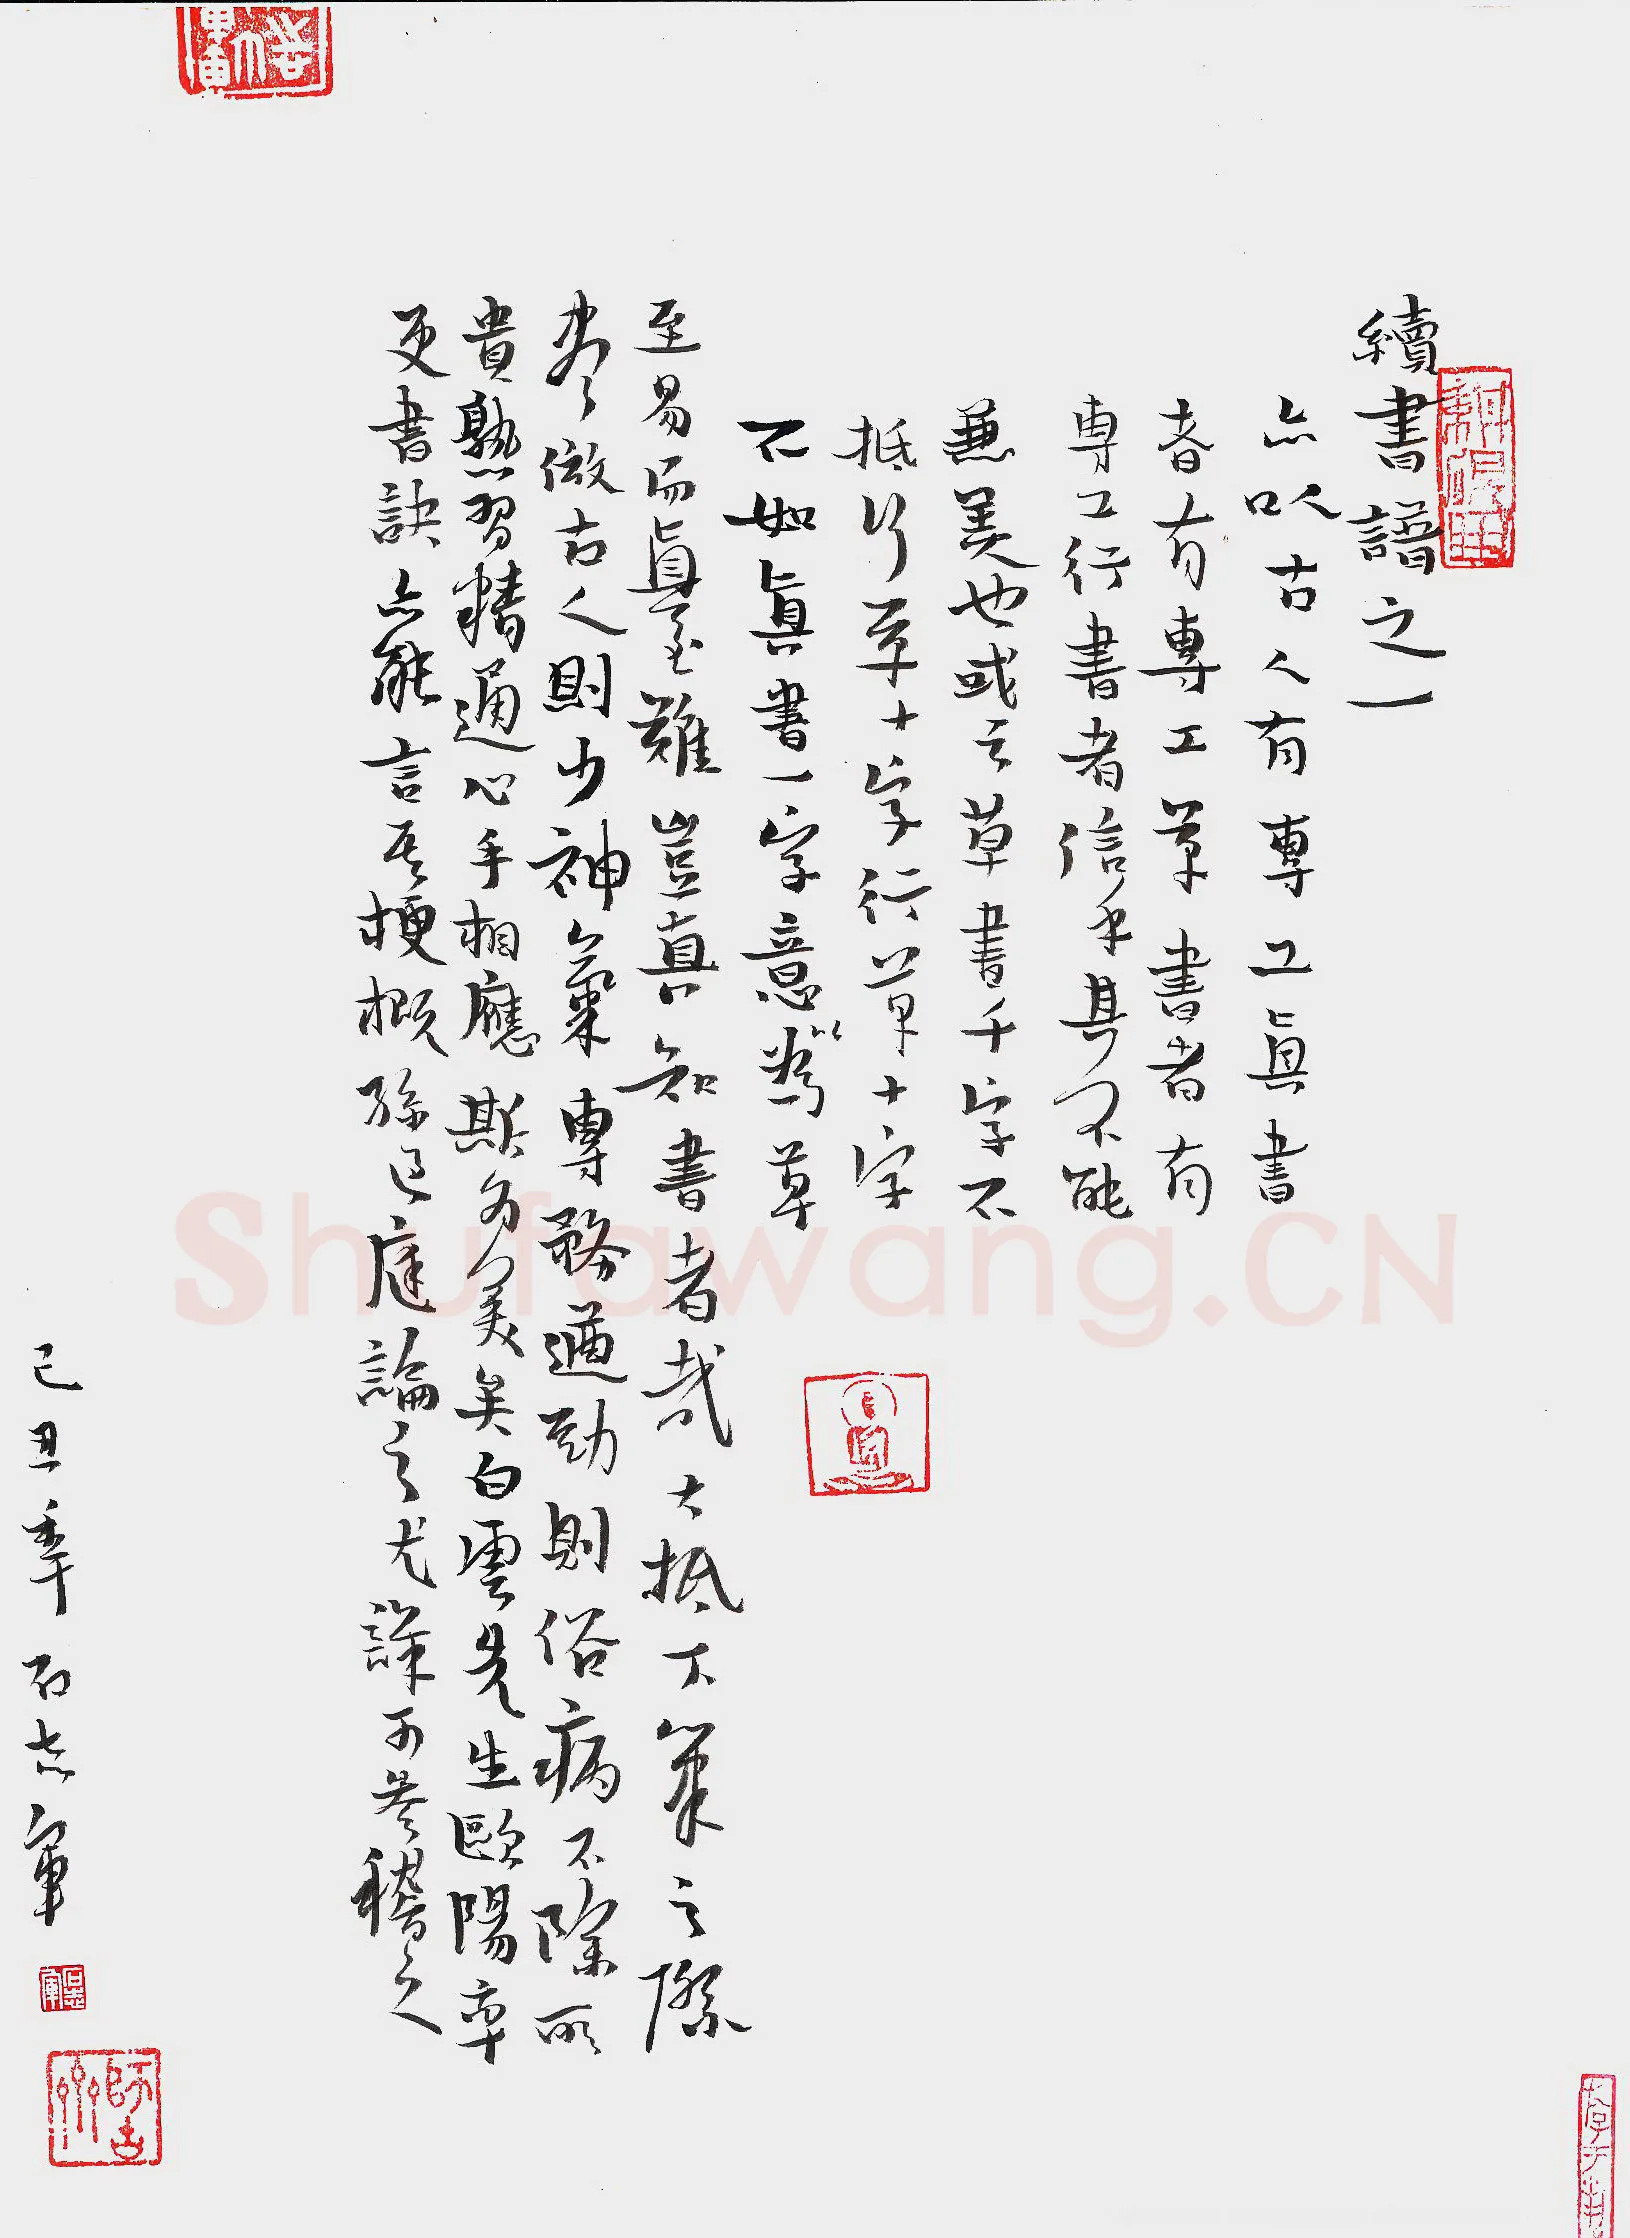 續書譜之一
亦以古人有專工眞書
者有專工草書者有
專工行書者信乎其不能
兼美也或云草書千字不
抵行草十字行草十字
不如眞書一字意以為草
至易而眞至難豈真知書者哉大抵下筆之際
盡倣古人則少神氣專務遒勁則俗病不除所
貴熟習精通心手相應斯為美矣白雲先生歐陽率
更書訣亦能言其梗概孫過庭論之尤詳可參稽之
己丑年石志軍
石志軍
師古
Shufawang.CN